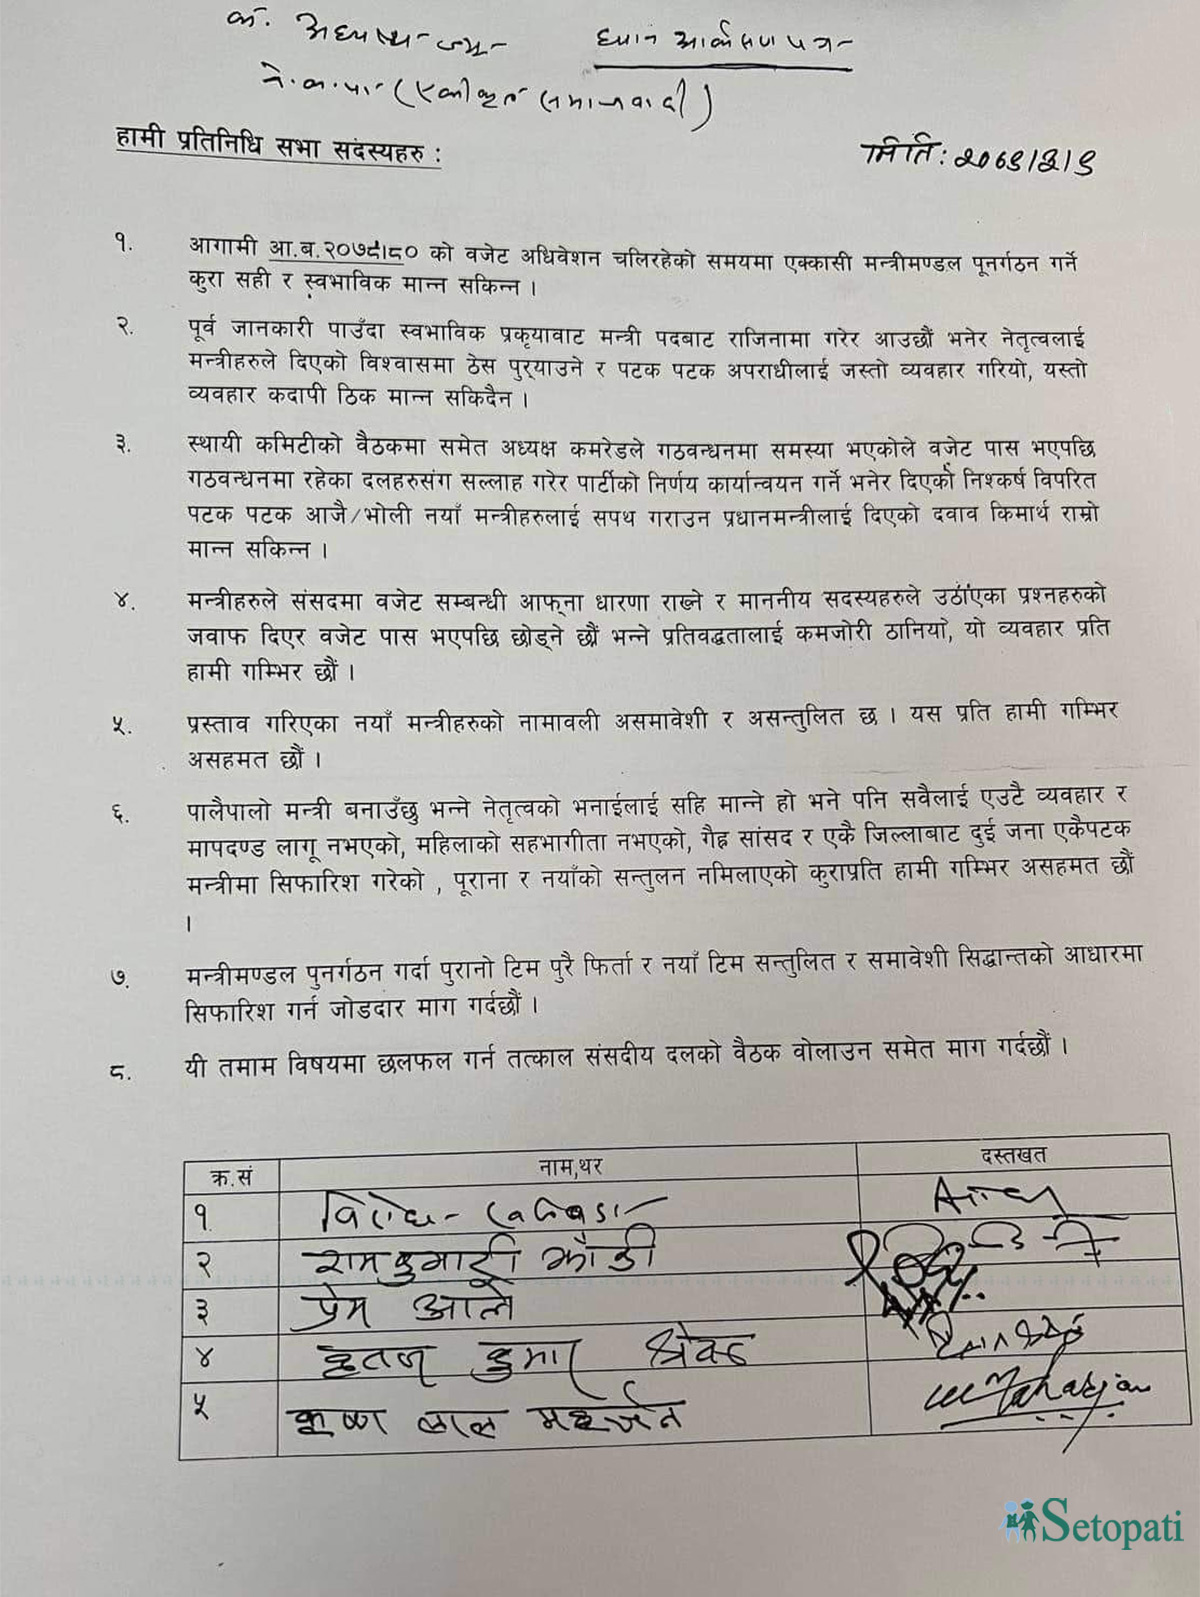 क. अध्यक्ष ज्यू-
ध्यान आर्कषण पत्र-
ने.क.पा. (एकीकृत समाजवादी)
हामी प्रतिनिधि सभा सदस्यहरु :
मिति: २०७९/३/९
१. आगामी आ.ब.२०७९।८० को वजेट अधिवेशन चलिरहेको समयमा एक्कासी मन्त्रीमण्डल पूनर्गठन गर्ने
कुरा सही र स्वभाविक मान्न सकिन्न ।
२. पूर्व जानकारी पाउँदा स्वभाविक प्रकृयावाट मन्त्री पदबाट राजिनामा गरेर आउछौं भनेर नेतृत्वलाई
मन्त्रीहरुले दिएको विश्वासमा ठेस पुर्‍याउने र पटक पटक अपराधीलाई जस्तो व्यवहार गरियो, यस्तो
व्यवहार कदापी ठिक मान्न सकिदैन ।
३. स्थायी कमिटीको वैठकमा समेत अध्यक्ष कमरेडले गठवन्धनमा समस्या भएकोले वजेट पास भएपछि
गठवन्धनमा रहेका दलहरुसंग सल्लाह गरेर पार्टीको निर्णय कार्यान्वयन गर्ने भनेर दिएको निश्कर्ष विपरित
पटक पटक आजै/भोली नयाँ मन्त्रीहरुलाई सपथ गराउन प्रधानमन्त्रीलाई दिएको दवाव किमार्थ राम्रो
मान्न सकिन्न ।
४. मन्त्रीहरुले संसदमा वजेट सम्बन्धी आफ्ना धारणा राख्ने र माननीय सदस्यहरुले उठाँएका प्रश्नहरुको
जवाफ दिएर वजेट पास भएपछि छोड्ने छौं भन्ने प्रतिवद्धतालाई कमजोरी ठानियो, यो व्यवहार प्रति
हामी गम्भिर छौं ।
५. प्रस्ताव गरिएका नयाँ मन्त्रीहरुको नामावली असमावेशी र असन्तुलित छ । यस प्रति हामी गम्भिर
असहमत छौं ।
६. पालैपालो मन्त्री बनाउँछु भन्ने नेतृत्वको भनाईलाई सहि मान्ने हो भने पनि सवैलाई एउटै व्यवहार र
मापदण्ड लागू नभएको, महिलाको सहभागीता नभएको, गैह्र सांसद र एकै जिल्लाबाट दुई जना एकैपटक
मन्त्रीमा सिफारिश गरेको , पूराना र नयाँको सन्तुलन नमिलाएको कुराप्रति हामी गम्भिर असहमत छौं
।
७. मन्त्रीमण्डल पुनर्गठन गर्दा पुरानो टिम पुरै फिर्ता र नयाँ टिम सन्तुलित र समावेशी सिद्धान्तको आधारमा
सिफारिश गर्न जोडदार माग गर्दछौं ।
८. यी तमाम विषयमा छलफल गर्न तत्काल संसदीय दलको वैठक वोलाउन समेत माग गर्दछौं ।
क्र.सं नाम,थर दस्तखत
१
२ रामकुमारी झाँक्री
३ प्रेम आले
४ कुमार श्रेष्ठ
५ कृष्ण लाल महर्जन
Setopati